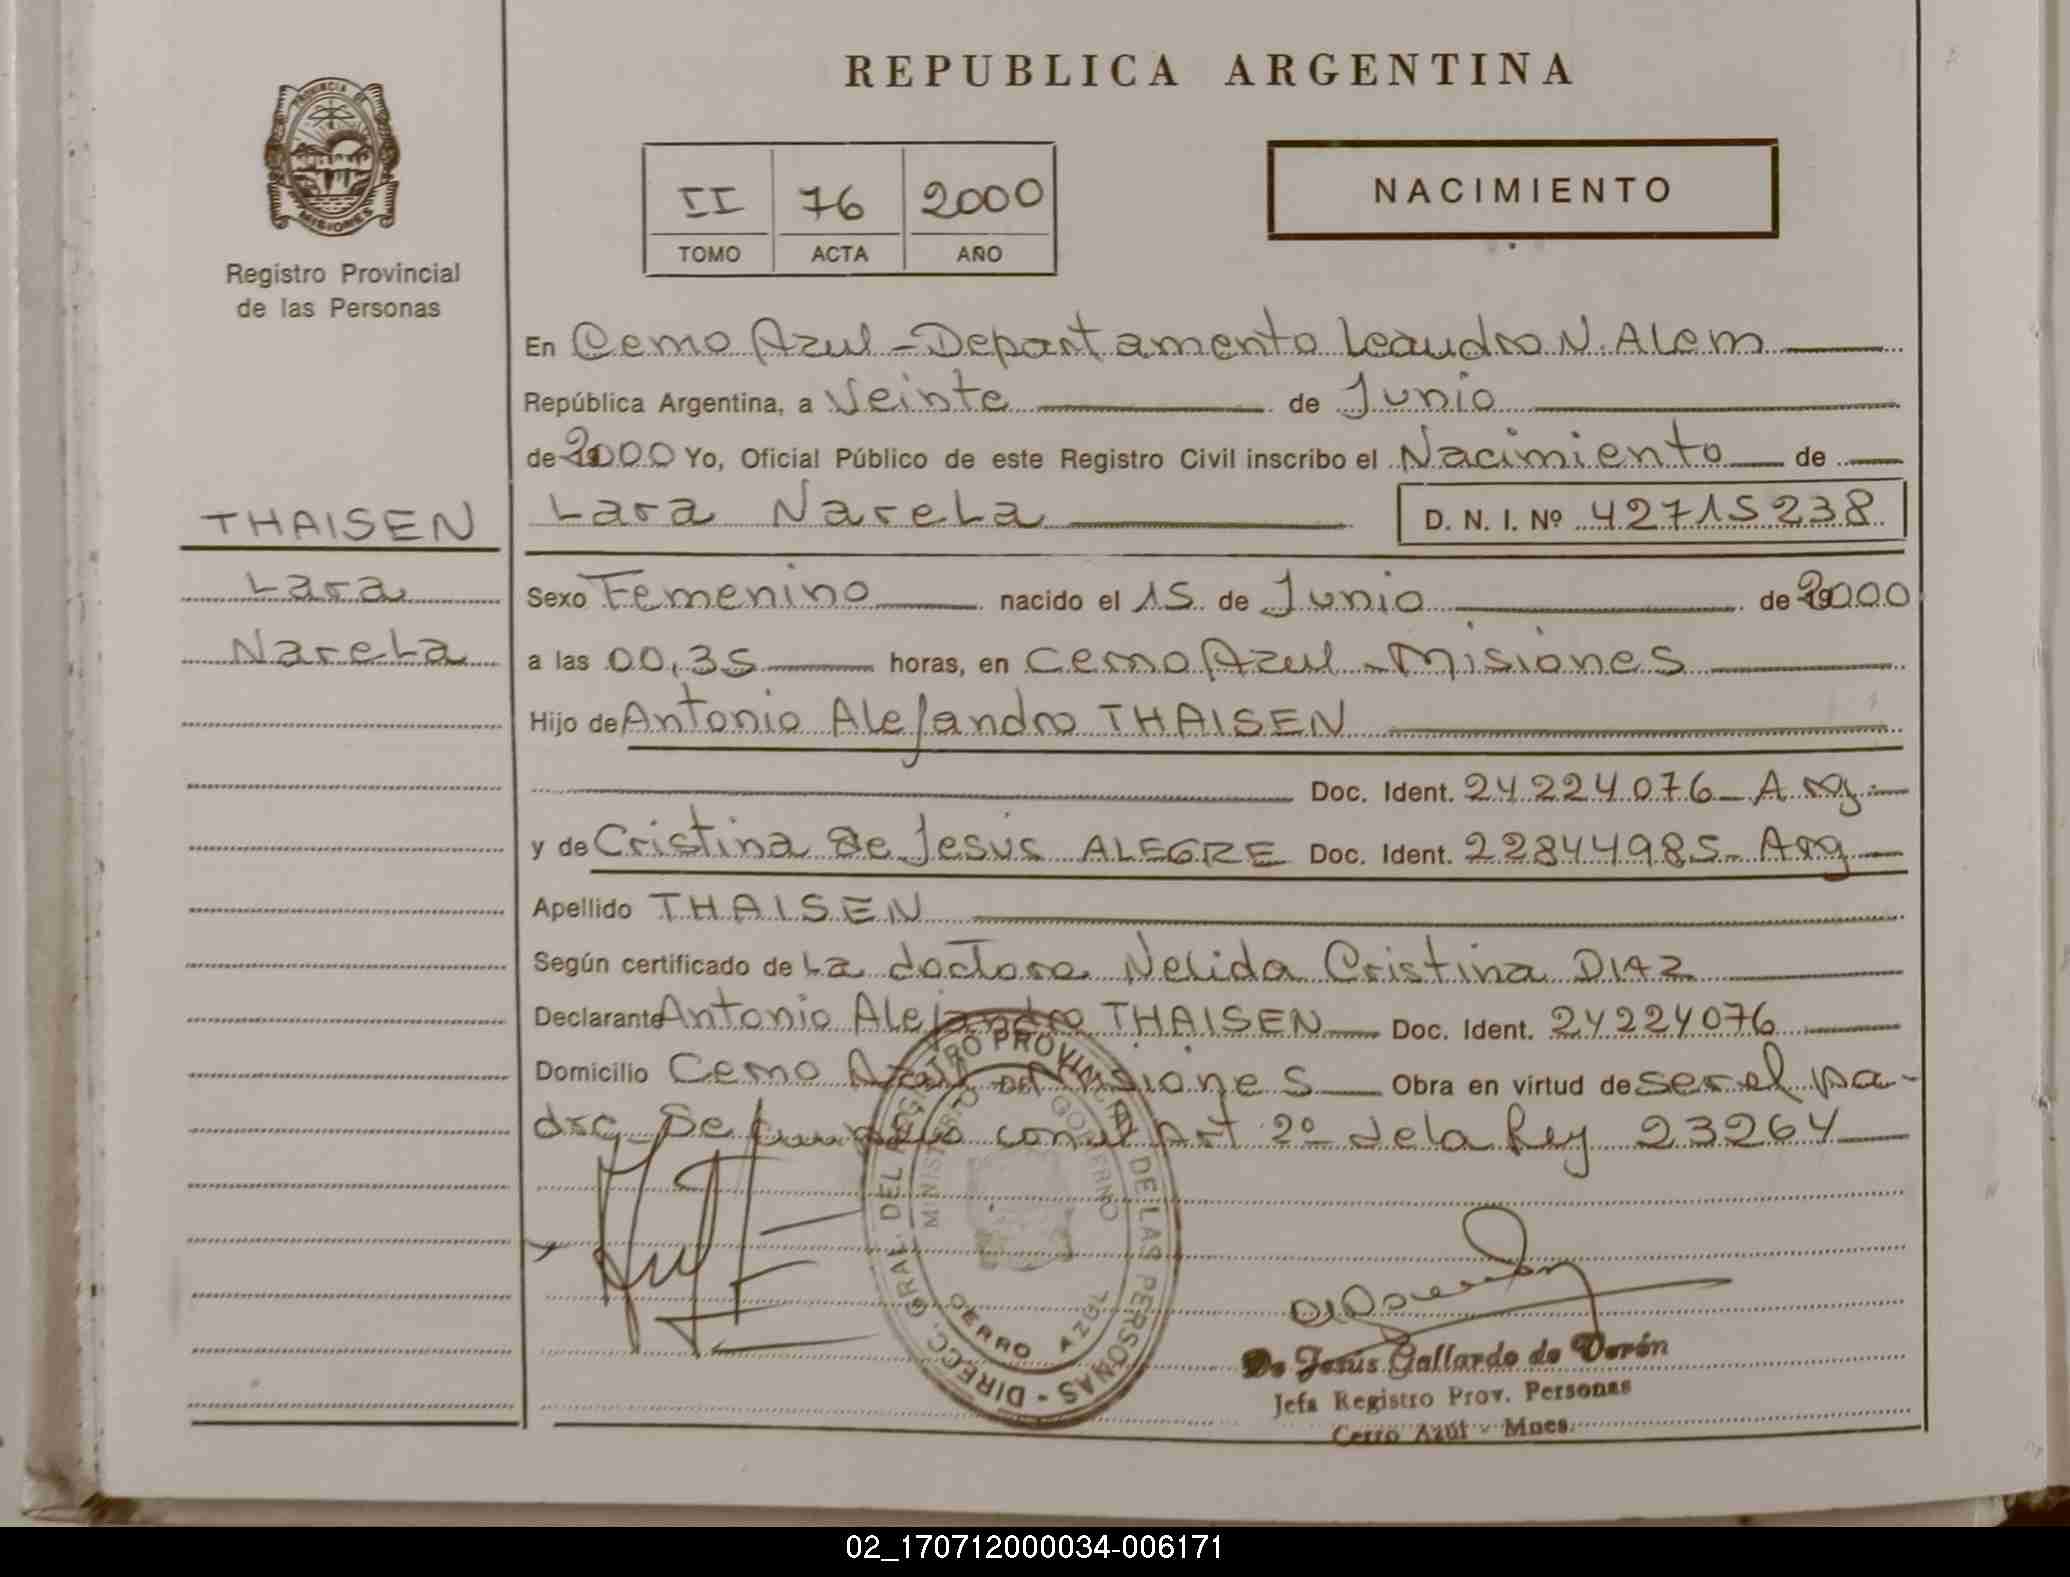 REPUBLICA ARGENTINA
PROVINCIA DE
MISIONES
Registro Provincial
de las Personas
II 76 2000
TOMO ACTA AÑO
NACIMIENTO
En Cerro Azul - Departamento Leandro N. Alem
República Argentina, a Veinte de Junio
de 2000 Yo, Oficial Público de este Registro Civil inscribo el Nacimiento de
THAISEN
Lara Narela D. N. I. Nº 42715238
Lara
Sexo Femenino nacido el 15 de Junio de 2000
Narela
a las 00,35 horas, en Cerro Azul - Misiones
Hijo de Antonio Alejandro THAISEN
Doc. Ident. 24224076 - Arg
y de Cristina de Jesús ALEGRE Doc. Ident. 22844985 - Arg
Apellido THAISEN
Según certificado de La doctora Nelida Cristina DIAZ
Declarante Antonio Alejandro THAISEN Doc. Ident. 24224076
Domicilio Cerro Azul Misiones Obra en virtud de ser el pa-
dre. Se cumplio con el Art 2º de la Ley 23264
DIRECC. GRAL. DEL REGISTRO PROVINCIAL DE LAS PERSONAS -
MINISTERIO DE GOBIERNO
CERRO AZUL
De Jesús Gallardo de Verón
Jefa Registro Prov. Personas
Cerro Azul - Mnes.
02_170712000034-006171